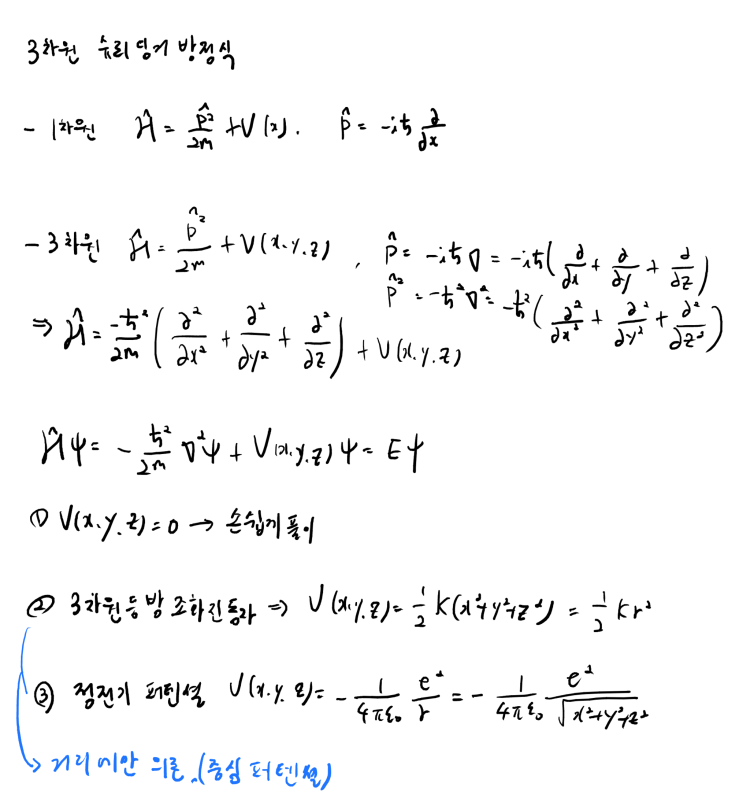 3차원 슈뢰딩거 방정식
- 1차원 Ĥ = p̂²/2m + V(x). p̂ = -iħ ∂/∂x
- 3차원 Ĥ = p̂²/2m + V(x.y.z), p̂ = -iħ∇ = -iħ(∂/∂x + ∂/∂y + ∂/∂z)
p̂² = -ħ²∇² = -ħ²(∂²/∂x² + ∂²/∂y² + ∂²/∂z²)
⇒ Ĥ = -ħ²/2m (∂²/∂x² + ∂²/∂y² + ∂²/∂z) + V(x.y.z)
Ĥψ = - ħ²/2m ∇²ψ + V(x.y.z)ψ = Eψ
① V(x.y.z) = 0 → 손쉽게 풀이
② 3차원 등방 조화진동자 ⇒ V(x.y.z) = 1/2 k(x²+y²+z²) = 1/2 kr²
③ 정전기 퍼텐셜 V(x.y.z) = - 1/4πε₀ e²/r = - 1/4πε₀ e²/√x²+y²+z²
↳ 거리에만 의존.(중심 퍼텐셜)